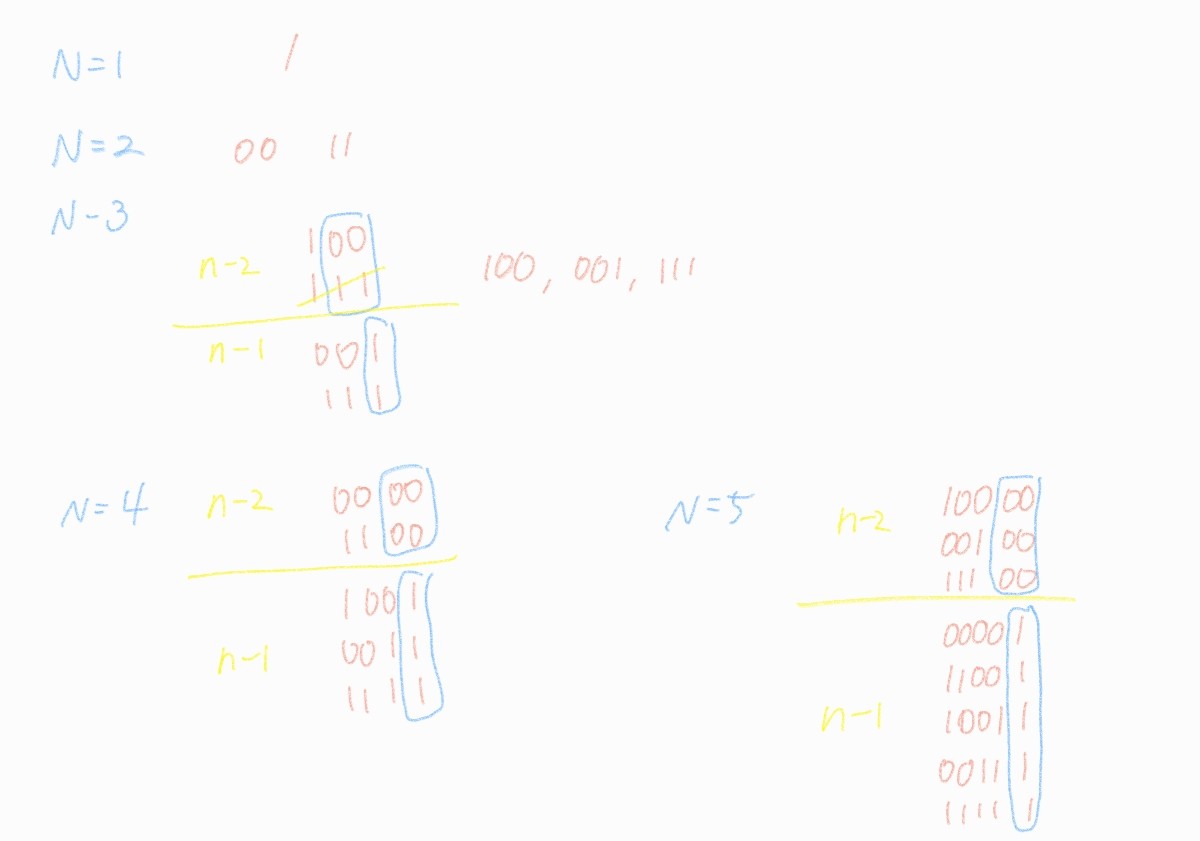 N=1 1
N=2 00 11
N-3
n-2 100
111
100, 001, 111
n-1 001
111
N=4 n-2 0000
1100
n-1 1001
0011
1111
N=5 n-2 10000
00100
11100
n-1 00001
11001
10011
00111
11111